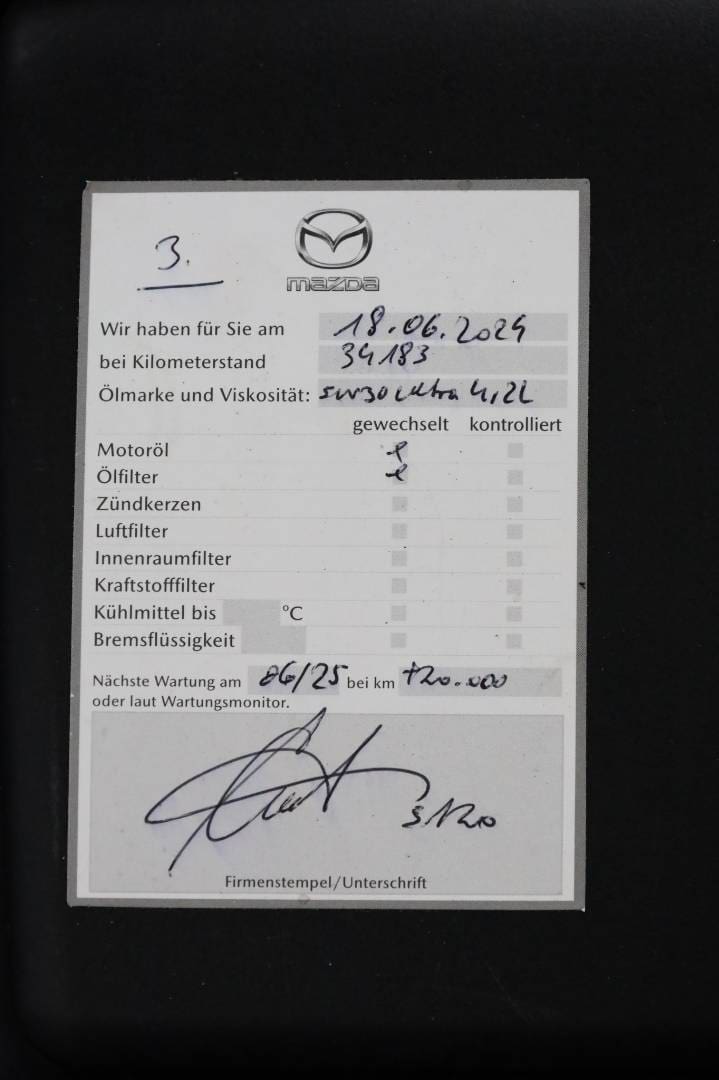 3.
mazda
Wir haben für Sie am 18.06.2024
bei Kilometerstand 34183
Ölmarke und Viskosität: 5W30 Ultra 4,2L
gewechselt kontrolliert
Motoröl
Ölfilter
Zündkerzen
Luftfilter
Innenraumfilter
Kraftstofffilter
Kühlmittel bis °C
Bremsflüssigkeit
Nächste Wartung am 06/25 bei km +20.000
oder laut Wartungsmonitor.
Firmenstempel/Unterschrift